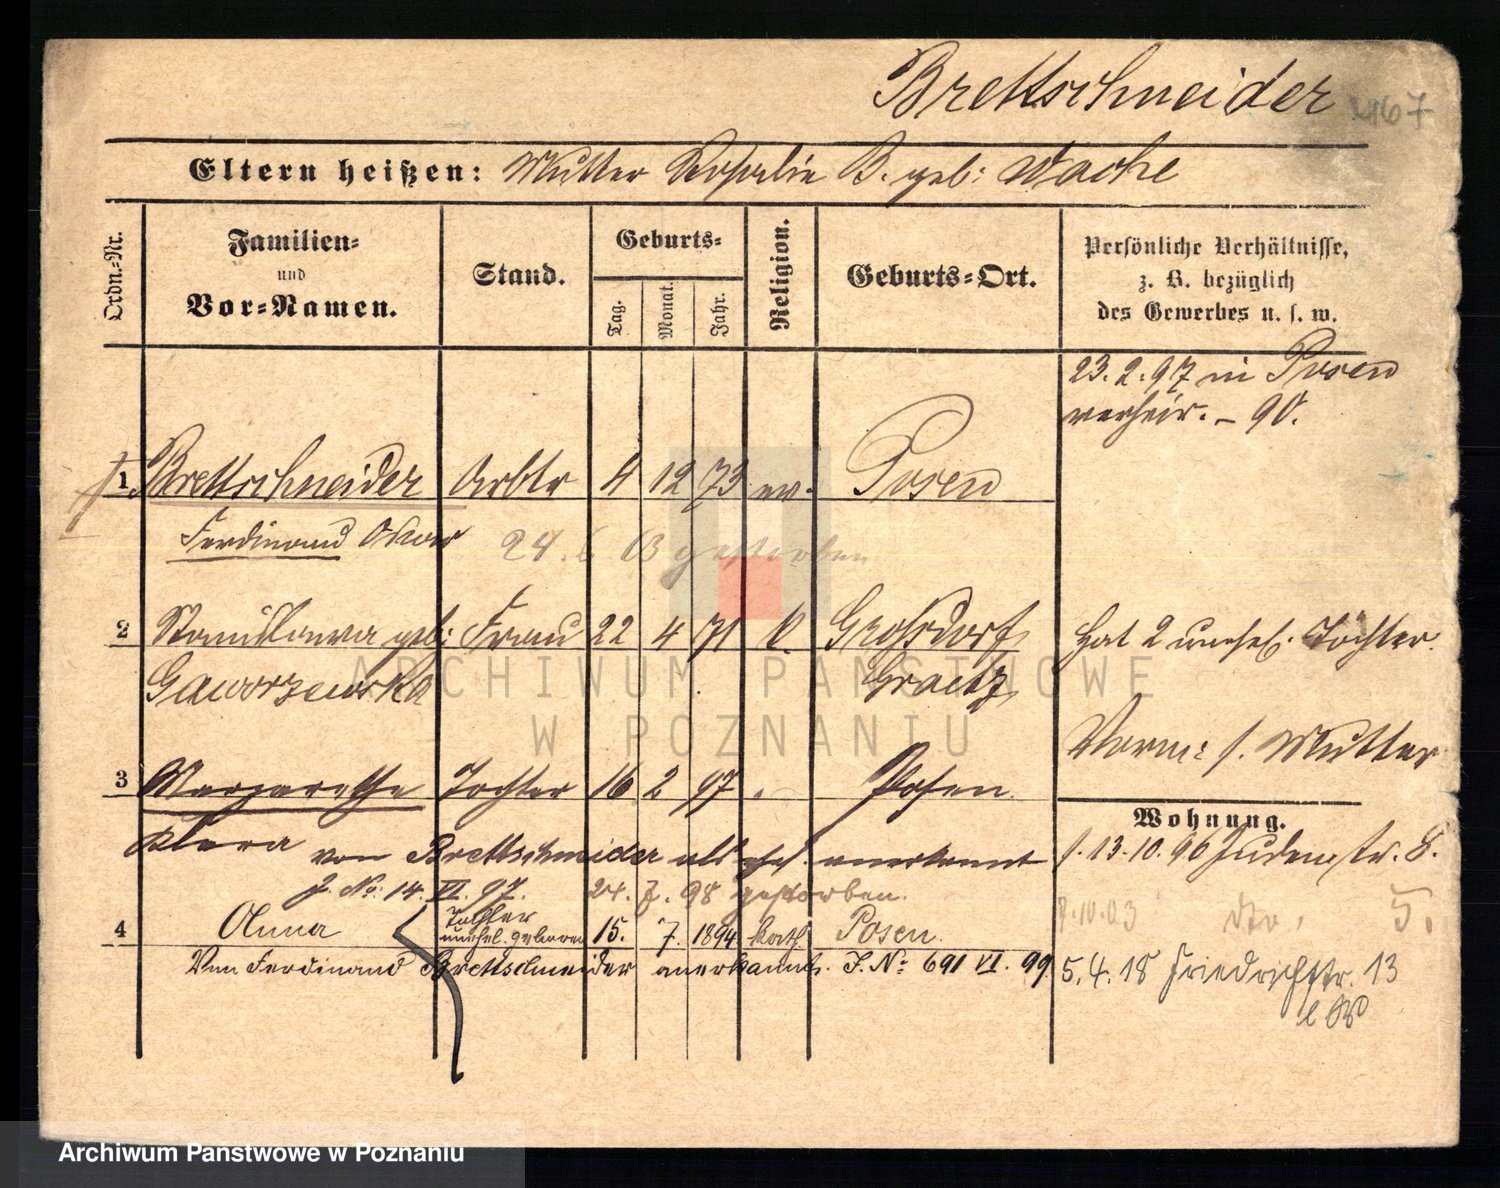 Brettschneider 467
Eltern heißen: Mutter Rosalie B. geb: Wache
Ordn.-Nr.
Familien-
und
Vor-Namen.
Stand.
Geburts-
Tag.
Monat.
Jahr.
Religion.
Geburts-Ort.
Persönliche Verhältnisse,
z. B. bezüglich
des Gewerbes u. s. w.
23. 2. 97 in Posen
verheir. - 90.
1 Brettschneider Arbtr 4 12 73 ev. Posen
Ferdinand Oskar 24. 6 03 gestorben
2 Stanislawa geb: Frau 22 4 71 k. Großdorf
Hat 2 unehel. Töchter.
Gaworzewska Graetz
Vorm: s. Mutter
3 Margarethe Tochter 16 2 97 Posen.
Klara von Brettschneider als ehel. anerkannt
J. No: 14. VI. 97. 24. 7. 98 gestorben.
Wohnung.
s. 13. 10. 96 Judenstr. 8.
7.10.03 dto. 5.
5. 4. 18 Friedrichstr. 13
4 Anna Tochter
unehel. geboren 15. 7. 1894 kath. Posen.
Von Ferdinand Brettschneider anerkannt. J. No: 691 VI. 99
ARCHIWUM PAŃSTWOWE
W POZNANIU
Archiwum Państwowe w Poznaniu